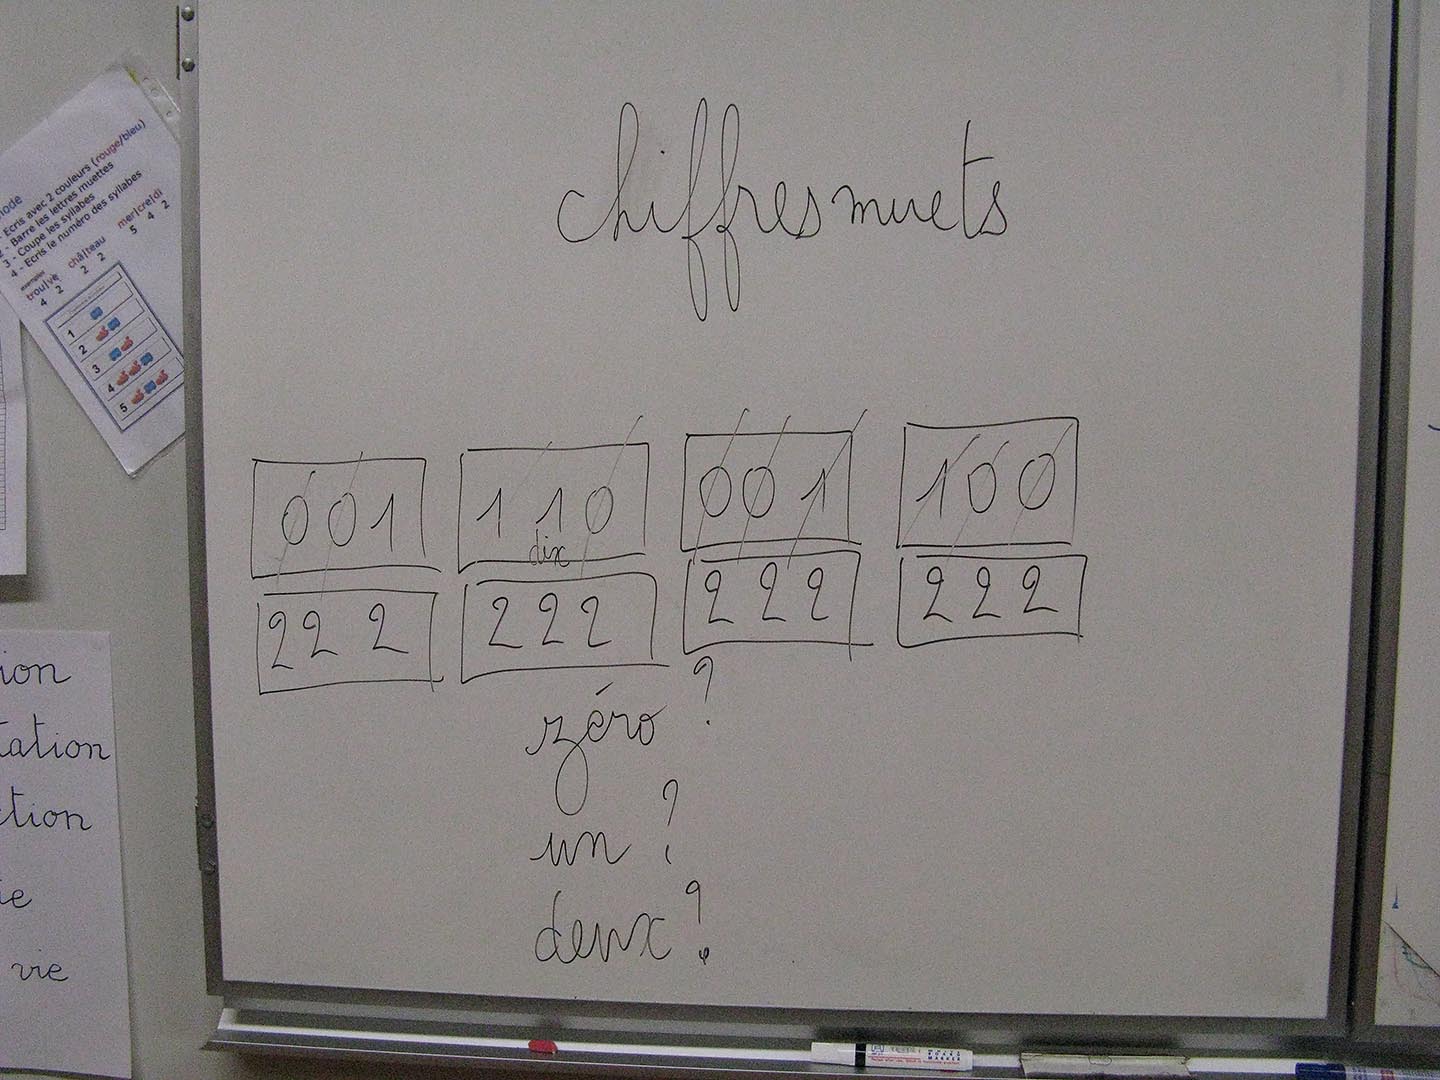 chiffres muets
001 110 001 100
dix
222 222 222 222
zéro ?
un ?
deux ?
- Ecris avec 2 couleurs (rouge/bleu)
2 - Barre les lettres muettes
3 - Coupe les syllabes
4 - Ecris le numéro des syllabes
trou|ve châ|teau mer|cre|di
4 2 2 2 5 4 2
1
2
3
4
5
ion
tation
ction
ie
vie